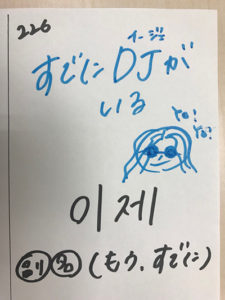 226
イージェ
すでにDJが
いる
YO!
YO!
이제
副 名 (もう、すでに)